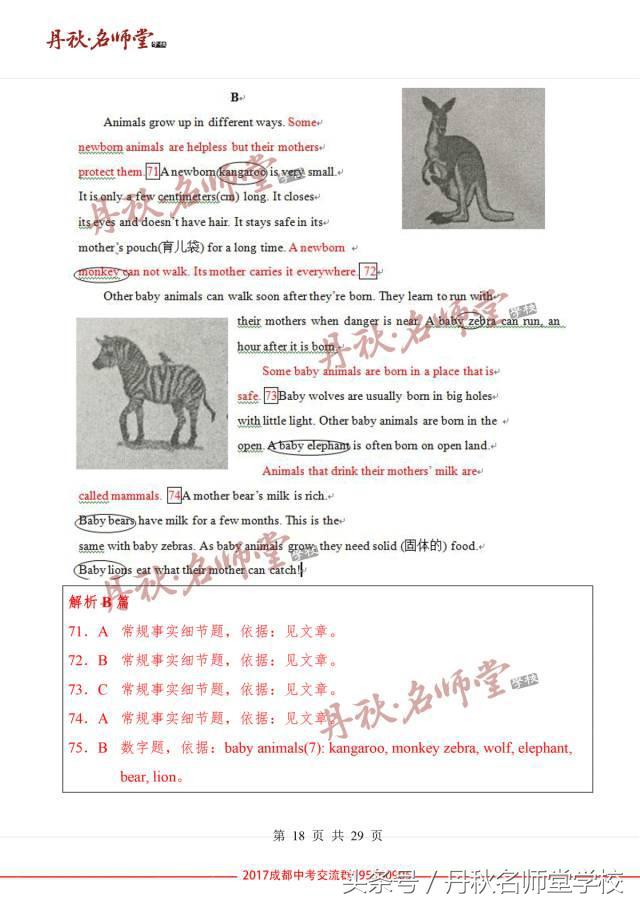 丹秋·名师堂学校
B
Animals grow up in different ways. Some
newborn animals are helpless but their mothers
protect them. 71 A newborn kangaroo is very small.
It is only a few centimeters(cm) long. It closes
its eyes and doesn't have hair. It stays safe in its
mother's pouch(育儿袋) for a long time. A newborn
monkey can not walk. Its mother carries it everywhere. 72
Other baby animals can walk soon after they're born. They learn to run with
their mothers when danger is near. A baby zebra can run, an
hour after it is born.
Some baby animals are born in a place that is
safe. 73 Baby wolves are usually born in big holes
with little light. Other baby animals are born in the
open. A baby elephant is often born on open land.
Animals that drink their mothers' milk are
called mammals. 74 A mother bear's milk is rich.
Baby bears have milk for a few months. This is the
same with baby zebras. As baby animals grow, they need solid (固体的) food.
Baby lions eat what their mother can catch!
解析 B 篇
71．A 常规事实细节题，依据：见文章。
72．B 常规事实细节题，依据：见文章。
73．C 常规事实细节题，依据：见文章。
74．A 常规事实细节题，依据：见文章。
75．B 数字题，依据：baby animals(7): kangaroo, monkey zebra, wolf, elephant,
bear, lion。
第 18 页 共 29 页
2017成都中考交流群
头条号 / 丹秋名师堂学校